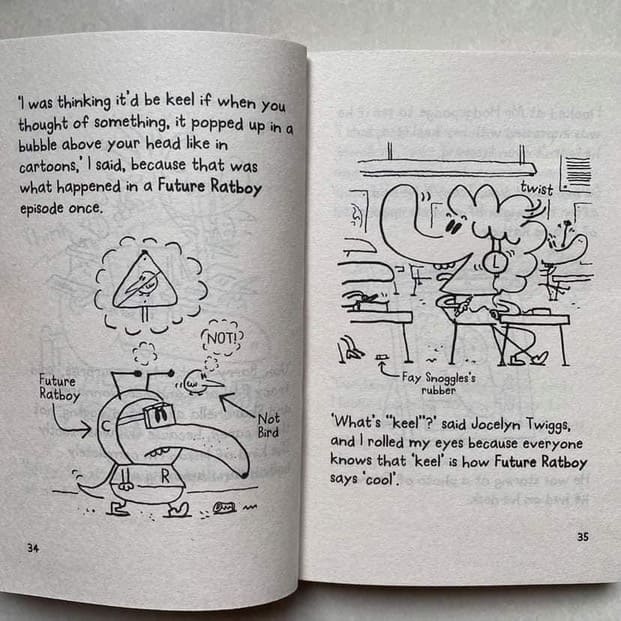 'I was thinking it'd be keel if when you
thought of something, it popped up in a
bubble above your head like in
cartoons,' I said, because that was
what happened in a Future Ratboy
episode once.
NOT!?
Future
Ratboy
Not
Bird
C
R
34
twist
L
Fay Snoggles's
rubber
'What's "keel"?' said Jocelyn Twiggs,
and I rolled my eyes because everyone
knows that 'keel' is how Future Ratboy
says 'cool'.
35